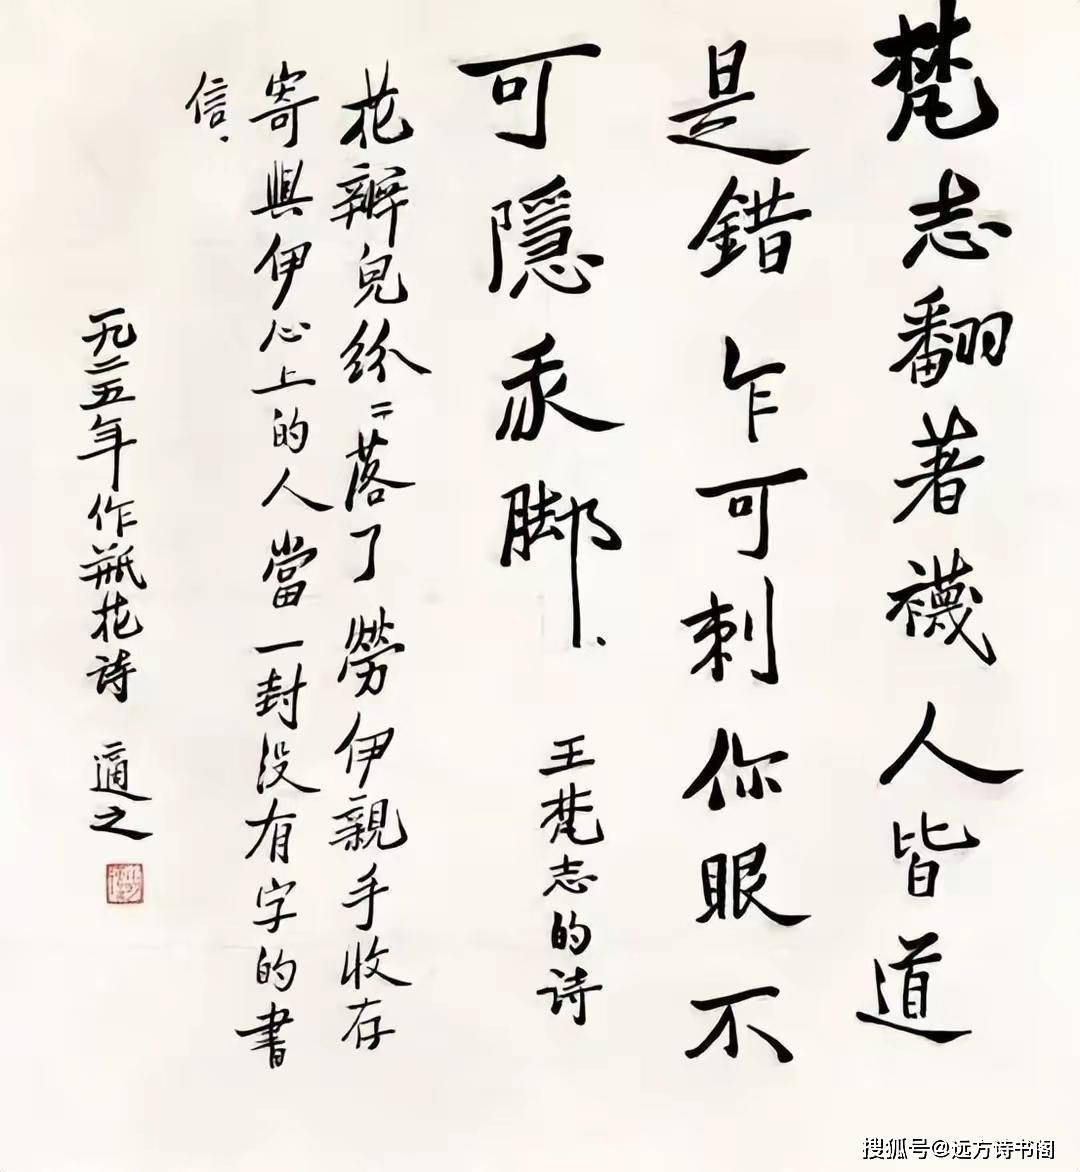 梵志翻著襪人皆道
是錯乍可刺你眼不
可隱我脚.
王梵志的诗
花瓣兒紛〻落了勞伊親手收存
寄與伊心上的人當一封没有字的書
信.
一九二五年作瓶花诗 適之
搜狐号@远方诗书阁